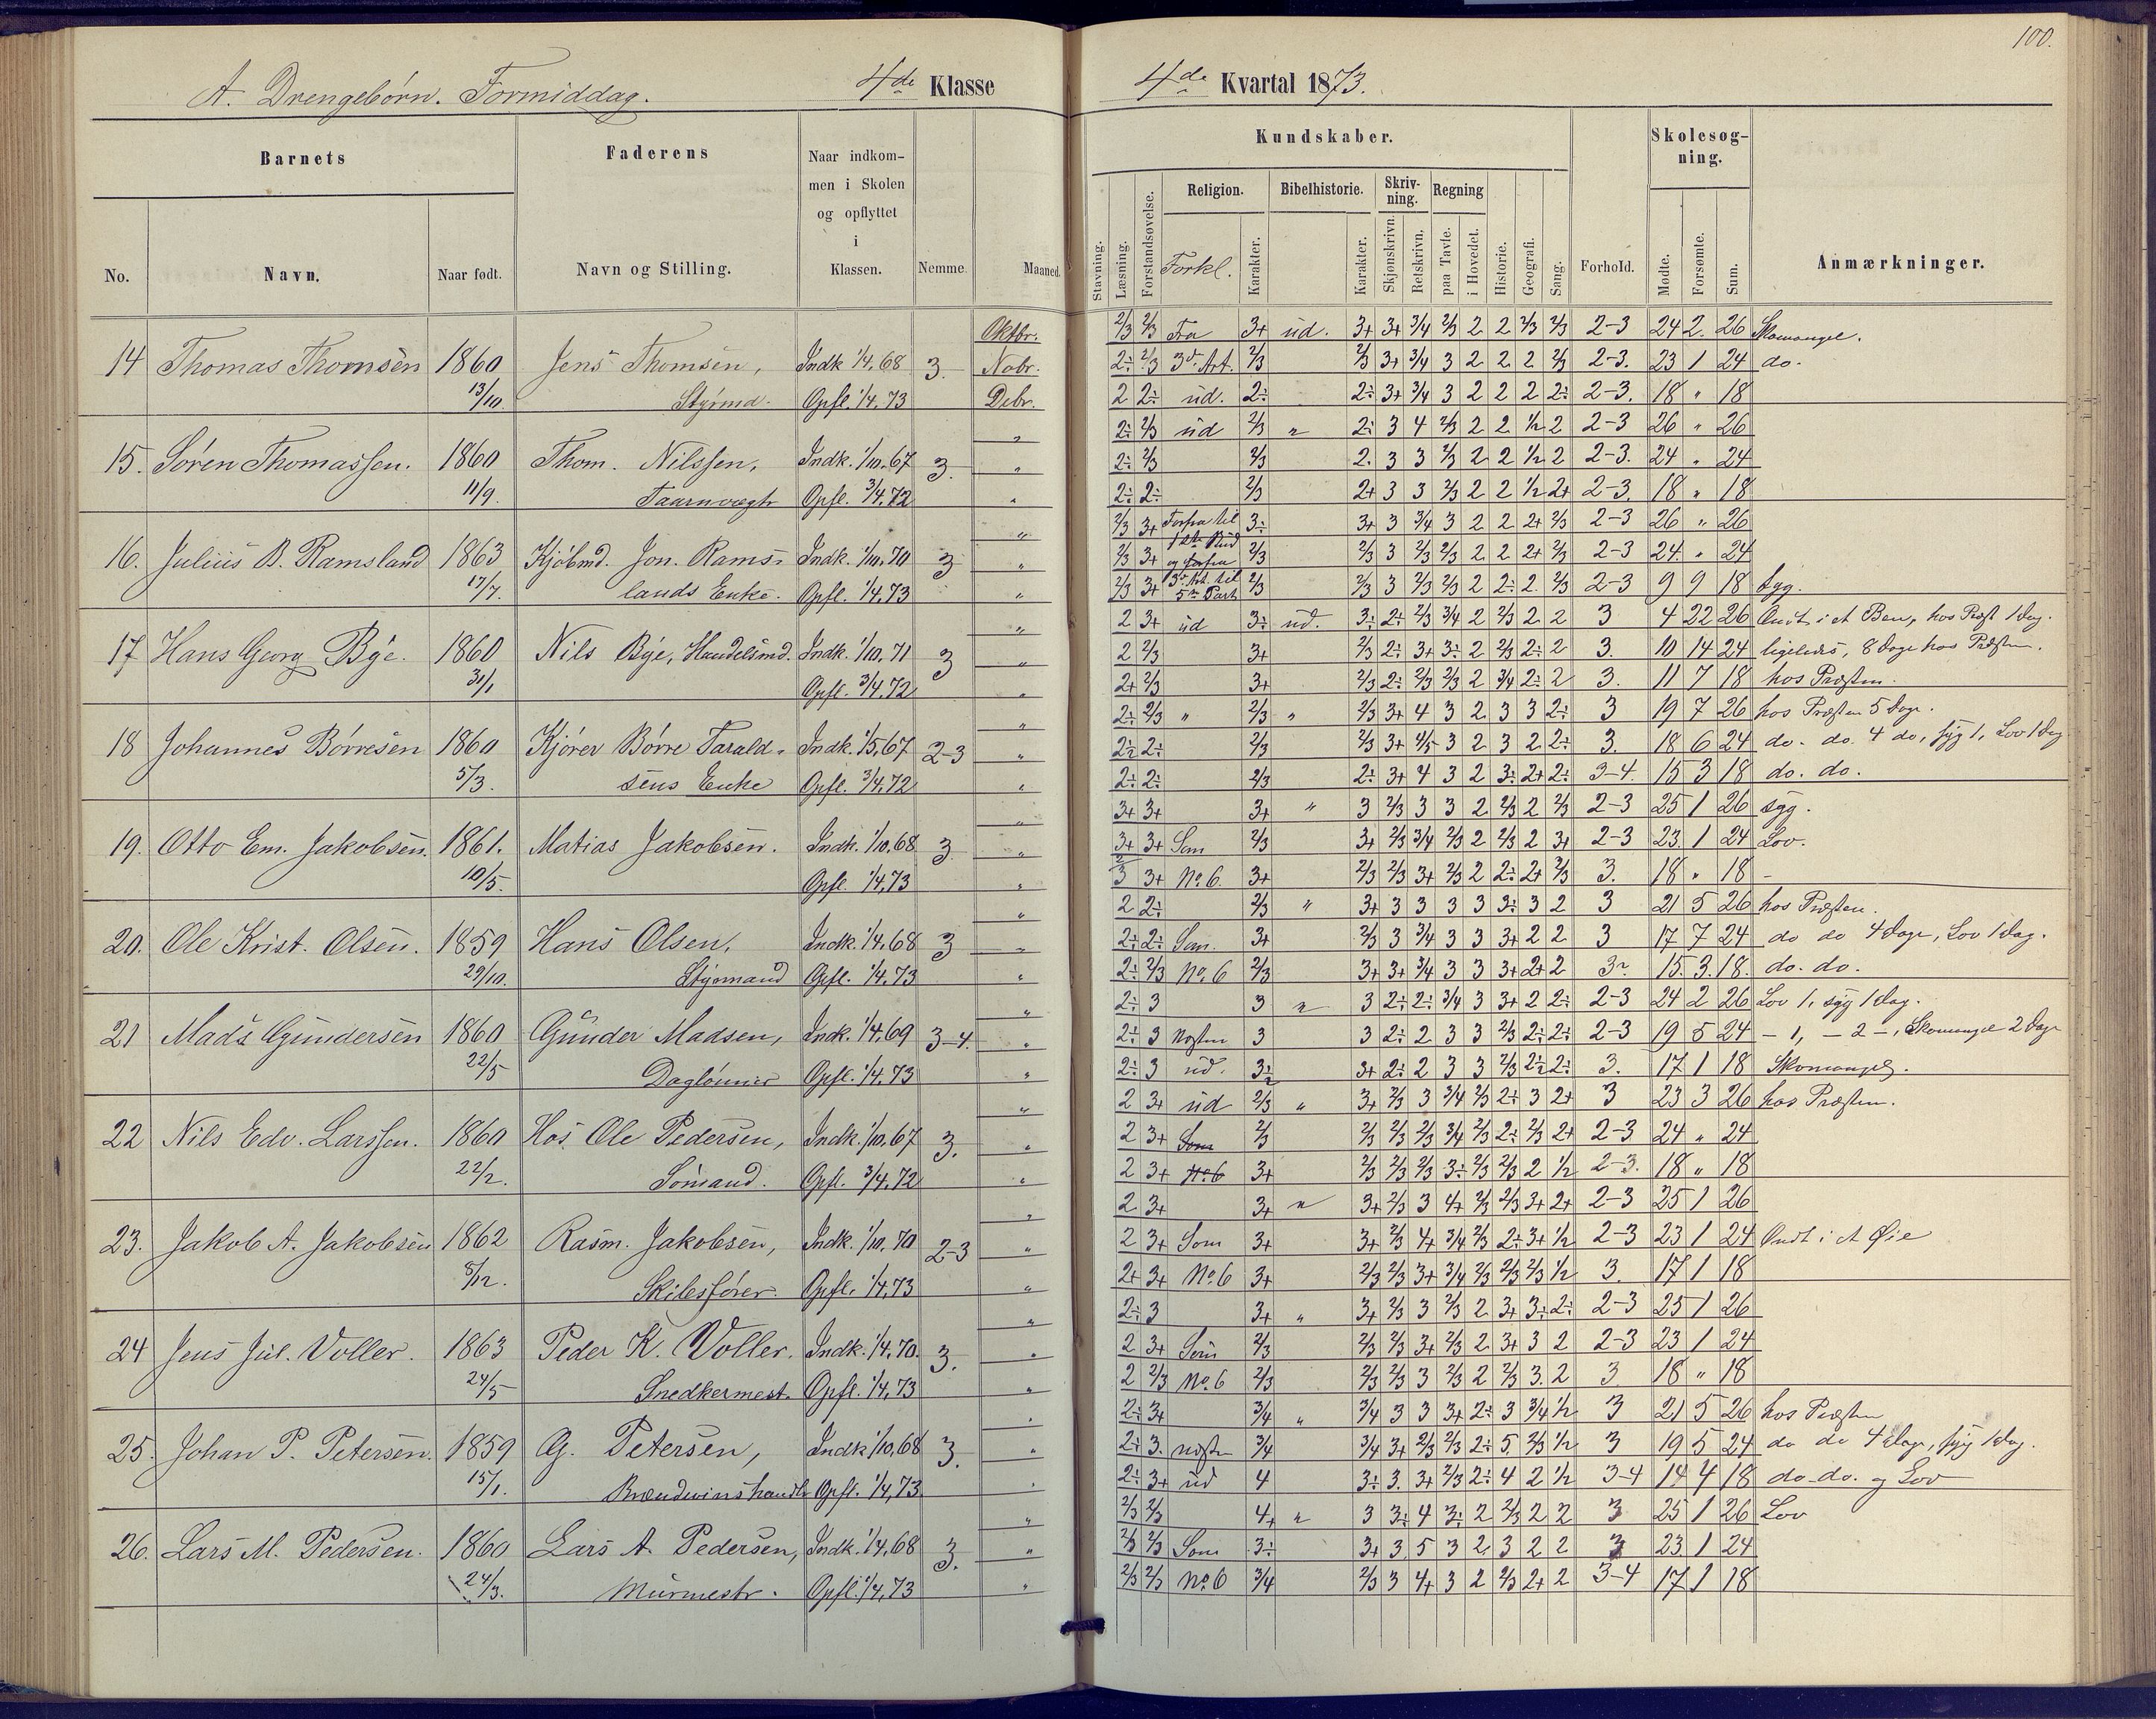 100.
A. Drengebørn. Formiddag. 4de Klasse
4de Kvartal 1873.
Barnets
Faderens
Naar indkom-
men i Skolen
og opflyttet
i
Klassen.
No.
Navn.
Naar født.
Navn og Stilling.
Nemme.
Maaned.
Kundskaber.
Skolesøg-
ning.
Stavning.
Læsning.
Forstandsøvelse.
Religion.
Forkl.
Karakter.
Bibelhistorie.
Karakter.
Skriv-
ning.
Skjønskrivn.
Retskrivn.
Regning
paa Tavle.
i Hovedet.
Historie.
Geografi.
Sang.
Forhold.
Mødte.
Forsømte.
Sum.
Anmærkninger.
Oktbr.
14 Thomas Thomsen 1860 Jens Thomsen, Indk 1/4.68 3. Nobr.
13/10. Styrmd. Opfl. 1/4.73 Debr.
15. Søren Thomassen. 1860 Thom. Nilssen, Indk. 1/10.67 3. "
11/9. Taarnvægtr Opfl. 3/4.72 "
16. Julius B. Ramsland 1863 Kjøbmd. Jon. Rams- Indk. 1/10.70 3 "
17/7. lands Enke. Opfl. 1/4.73 "
17 Hans Georg Bye. 1860 Nils Bye, Handelsmd. Indk. 1/10.71 3 "
31/1 Opfl. 3/4.72 "
18 Johannes Børresen 1860 Kjører Børre Tarald- Indk. 1/5.67 2-3 "
5/3. sens Enke Opfl. 3/4.72 "
19. Otto Em. Jakobsen. 1861. Matias Jakobsen. Indk. 1/10.68 3 "
10/5. Opfl. 1/4.73 "
20. Ole Krist. Olsen. 1859 Hans Olsen, Indk. 1/4.68 3 "
29/10. Styrmand Opfl. 1/4.73 "
21 Mads Gundersen 1860 Gunder Madsen, Indk. 1/4.69 3-4. "
22/5 Daglønner Opfl. 1/4.73 "
22 Nils Edv. Larssen. 1860 Hos Ole Pedersen, Indk. 1/10.67 3. "
22/2. Sømand. Opfl. 3/4.72 "
23. Jakob A. Jakobsen 1862 Rasm. Jakobsen, Indk. 1/10.70 2-3 "
8/12. Skibsfører. Opfl. 1/4.73 "
24 Jens Jul. Voller. 1863 Peder K. Voller. Indk. 1/4.70. 3. "
24/5 Snedkermest. Opfl. 1/4.73 "
25. Johan P. Petersen. 1859 G. Petersen, Indk 1/10.68 3. "
15/1. Brændvinshandlr Opfl. 1/4.73 "
26. Lars M. Pedersen. 1860 Lars A. Pedersen, Indk. 1/4.68 3. "
24/3. Murmestr. Opfl. 1/4.73 "
2/3 2/3 Fra 3+ ud. 3+ 3+ 3/4 2/3 2 2 2/3 2/3 2-3 24 2. 26 Skomangel.
2÷ 2/3 3die Art. 2/3 2/3 3+ 3/4 3 2 2 2 2/3 2-3. 23 1 24 do.
2 2÷ ud. 2÷ 2÷ 3+ 3/4 3 2 2 2 2÷ 2-3. 18 " 18
2÷ 2/3 ud 2/3 " 2÷ 3 4 2/3 2 2 1/2 2 2-3 26 " 26
2÷ 2/3 2/3 2. 3 3 2/3 2 2 1/2 2 2-3. 24 " 24
2÷ 2÷ 2/3 2+ 3 3 2/3 2 2 1/2 2+ 2-3. 18 " 18
2/3 3+ Forfra til 3÷ 3+ 3 3/4 3 2 2 2+ 2/3 2-3 26 " 26
2/3 3+ 2/3 2/3 3 2/3 2/3 2 2 2+ 2/3 2-3 24. " 24
2/3 3+ 2/3 2/3 3 2/3 2/3 2 2÷ 2. 2/3 2-3 9 9 18 syg.
2 3+ ud 3÷ ud. 3÷ 2÷ 2/3 3/4 2 2/3 2 2 3 4 22 26 Ondt i et Ben, hos Præst 1 dag.
2 2/3 3+ 2/3 2÷ 3+ 3÷ 2 2/3 2÷ 2 3. 10 14 24 ligeledes, 8 dage hos Præsten.
2+ 2/3 3+ 2/3 2÷ 2/3 2/3 2 3/4 2÷ 2 3. 11 7 18 hos Præsten.
2÷ 2/3 " 2/3 " 2/3 3+ 4 3 2 3 3 2÷ 3 19 7 26 hos Præsten 5 Dage.
2÷ 2÷ 2/3 2/3 3+ 4/5 3 2 3 2 2÷ 3. 18 6 24 do. do. 4 do, syg 1, Lov 1 dag
2÷ 2÷ 2/3 2÷ 3+ 4 3 2 3÷ 2+ 2÷ 3-4. 15 3 18 do. do.
3+ 3+ 3+ " 3 2/3 3 3 2 2/3 2 2/3 2-3 25 1 26 syg.
3+ 3+ Som 2/3 3+ 2/3 3/4 2/3 2 2/3 2 3+ 2-3 23. 1 24 Lov.
2/3 3+ No. 6. 3+ 2/3 2/3 3+ 2/3 2 2÷ 2+ 2/3 3. 18 " 18 -
2 2÷ 2/3 " 3+ 3 3 3 3 3÷ 3 2 3 21 5 26 hos Præsten.
2÷ 2÷ Som. 3+ 2/3 3 3/4 3 3 3+ 2 2 3 17 7 24 do do 4 dage, Lov 1 dag.
2÷ 2/3 No. 6 2/3 3+ 3+ 3/4 3 3 3+ 2+ 2 15. 3. 18. do. do.
2÷ 3 3 " 3 2÷ 2÷ 3/4 3 3+ 2 2÷ 2-3 24 2 26 Lov 1, syg 1 dag.
2÷ 3 Næsten 3 3 2÷ 2 3 3 2/3 2÷ 2÷ 2-3 19 5 24 - 1, - 2 -, Skomangel 2 dage
2÷ 3 ud. 3÷ 3+ 2÷ 2 3 3 2/3 2÷ 2÷ 3. 17 1 18 Skomangel.
2 3+ ud 2/3 " 3+ 2/3 3 3/4 2/3 2÷ 3 2+ 3 23 3 26 hos Præsten.
2 3+ Som 2/3 2/3 2/3 2/3 3/4 2/3 2÷ 2/3 2+ 2-3 24 " 24
2 3+ No. 6 3+ 2/3 2/3 2/3 3÷ 2/3 2/3 2 1/2 2-3. 18 " 18
2 3+ 3+ " 3+ 2/3 3 4+ 2/3 2/3 3+ 2+ 2-3 25 1 26
2 3+ Som 3+ 3+ 2/3 4+ 3/4 2/3 2÷ 3+ 1/2 2-3 23 1 24 Ondt i et Øie
2+ 3+ No. 6 3+ 2/3 2/3 3+ 3/4 2/3 2/3 2/3 1/2 3. 17 1 18
2÷ 3 3+ " 3+ 2/3 3 2/3 2 3+ 3÷ 2÷ 2-3 25 1 26
2 3+ Som 2/3 2/3 2/3 3+ 2/3 2 3+ 3 2 2-3 23 1 24
2 2/3 No. 6 2/3 2/3 2/3 3 2/3 2 2/3 3. 2 3 18 " 18
2÷ 3+ 3/4 " 3/4 3 3 3+ 2÷ 3 3/4 1/2 3 21 5 26 hos Præsten
2÷ 3. næsten 3/4 3/4 3+ 2/3 2/3 2÷ 5. 2/3 1/2 3 19 5 24 do do 4 dage, syg 1 dag.
2÷ 3+ ud 4 3÷ 3. 3+ 2/3 2÷ 4 2 1/2 3-4 14 4 18 do. do. og Lov
2/3 2/3 4+ " 3 3÷ 4 3÷ 2 2/3 2 2 3 25 1 26 Lov
2/3 2/3 Som 3÷ 3+ 3. 5 3 2 3 2 2 3 23 1 24
2/3 2/3 No. 6 3/4 2/3 3 4+ 3 2 2/3 2+ 2 3-4 17 1 18